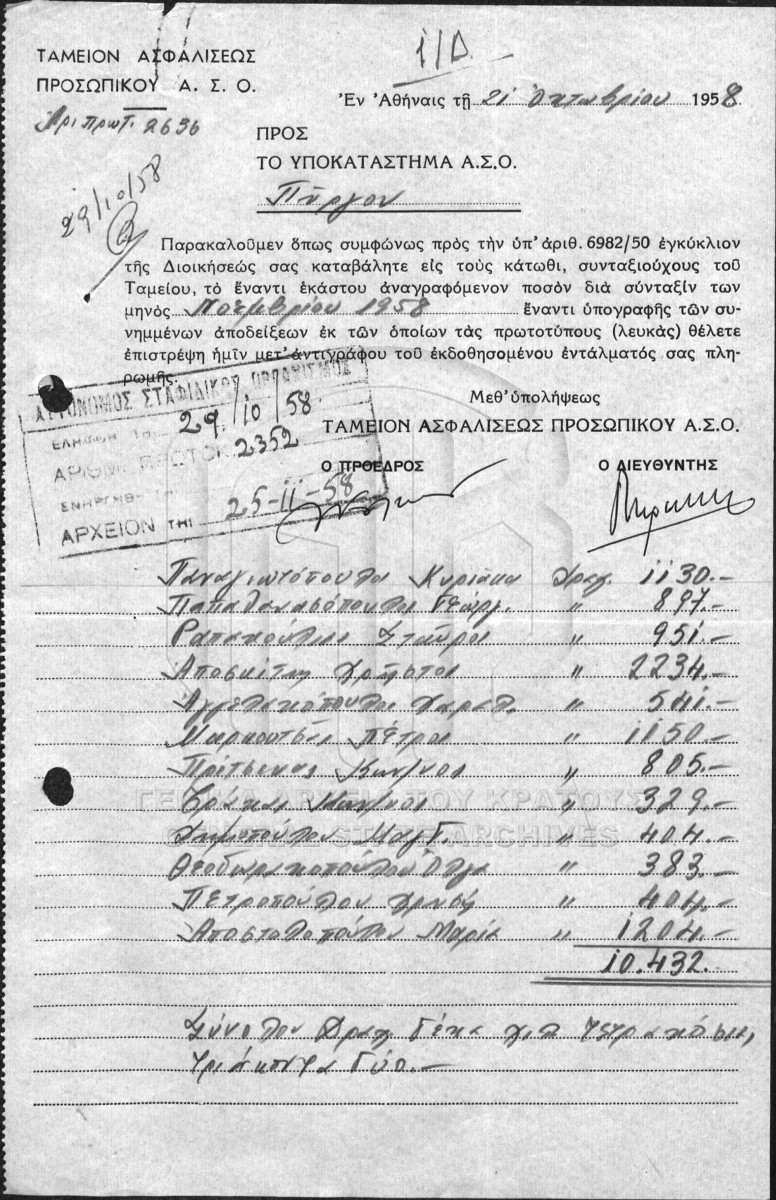 ι/Δ
ΤΑΜΕΙΟΝ ΑΣΦΑΛΙΣΕΩΣ
ΠΡΟΣΩΠΙΚΟΥ Α. Σ. Ο.
Ἀρι πρωτ. 2636
29/10/58
Ἐν Ἀθήναις τῇ 21 Ὀκτωβρίου 1958
ΠΡΟΣ
ΤΟ ΥΠΟΚΑΤΑΣΤΗΜΑ Α.Σ.Ο.
Πύργου
Παρακαλοῦμεν ὅπως συμφώνως πρὸς τὴν ὑπ' ἀριθ. 6982/50 ἐγκύκλιον
τῆς Διοικήσεώς σας καταβάλητε εἰς τοὺς κάτωθι, συνταξιούχους τοῦ
Ταμείου, τὸ ἔναντι ἑκάστου ἀναγραφόμενον ποσὸν διὰ σύνταξίν των
μηνὸς Νοεμβρίου 1958 ἔναντι ὑπογραφῆς τῶν συ-
νημμένων ἀποδείξεων ἐκ τῶν ὁποίων τὰς πρωτοτύπους (λευκὰς) θέλετε
ἐπιστρέψη ἡμῖν μετ' ἀντιγράφου τοῦ ἐκδοθησομένου ἐντάλματός σας πλη-
ρωμῆς.
ΑΥΤΟΝΟΜΟΣ ΣΤΑΦΙΔΙΚΟΣ ΟΡΓΑΝΙΣΜΟΣ
ΕΛΗΦΘΗ 29/10/58
ΑΡΙΘΜ. ΠΡΩΤΟΚ. 2352
ΕΝΗΡΓΗΘΗ ΤΗΙ
ΑΡΧΕΙΟΝ ΤΗΙ 25-11-58
Μεθ' ὑπολήψεως
ΤΑΜΕΙΟΝ ΑΣΦΑΛΙΣΕΩΣ ΠΡΟΣΩΠΙΚΟΥ Α.Σ.Ο.
Ο ΠΡΟΕΔΡΟΣ Ο ΔΙΕΥΘΥΝΤΗΣ
Παναγιωτόπουλο Κυριάκο Δραχ. 1130.—
Παπαθανασόπουλο Γεώργ. " 897.—
Σταῦρο " 951.—
Αποσκίτη Χρῆστο " 2234.—
Ἀγγελακόπουλο Χαραλ. " 541.—
Μαρκουτσᾶ Πέτρο " 1150.—
Πρίτσινας Κων/νος " 805.—
Κων/νος " 329.—
Δημοπούλου Μαγδ. " 404.—
Θεοδωρακοπούλου Ὄλγα " 383.—
Πετροπούλου Χρυσῆ " 404.—
Αποστολοπούλου Μαρία " 1204.—
10.432.—
Σύνολον Δραχ. Δέκα χιλ. τετρακόσιαι,
τριάκοντα δύο.—
ΓΕΝΙΚΑ ΑΡΧΕΙΑ ΤΟΥ ΚΡΑΤΟΥΣ
GENERAL STATE ARCHIVES